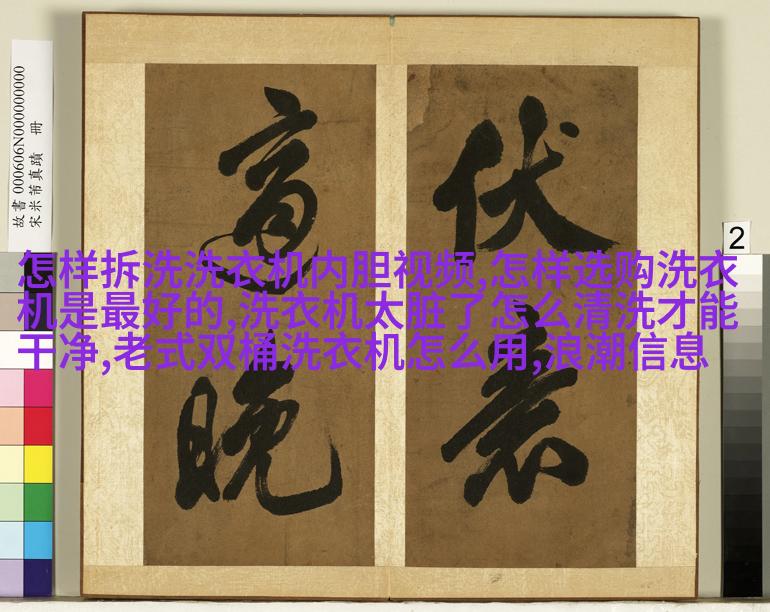 故書 000606N000000000
宋米芾真蹟 冊
2
伏
晚
怎样拆洗洗衣机内胆视频,怎样选购洗衣
机是最好的,洗衣机太脏了怎么清洗才能
干净,老式双桶洗衣机怎么用,浪潮信息